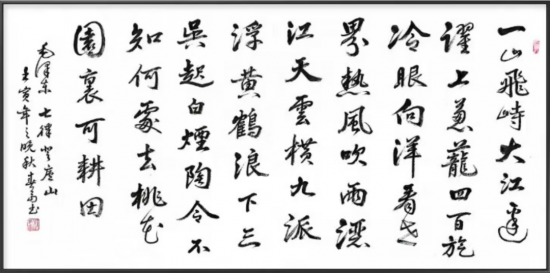 一山飛峙大江邊
躍上蔥蘢四百旋
冷眼向洋看世
界熱風吹雨灑
江天雲橫九派
浮黃鶴浪下三
吳起白煙陶令不
知何處去桃花
園裏可耕田
毛澤東 七律 登廬山
壬寅年之晚秋